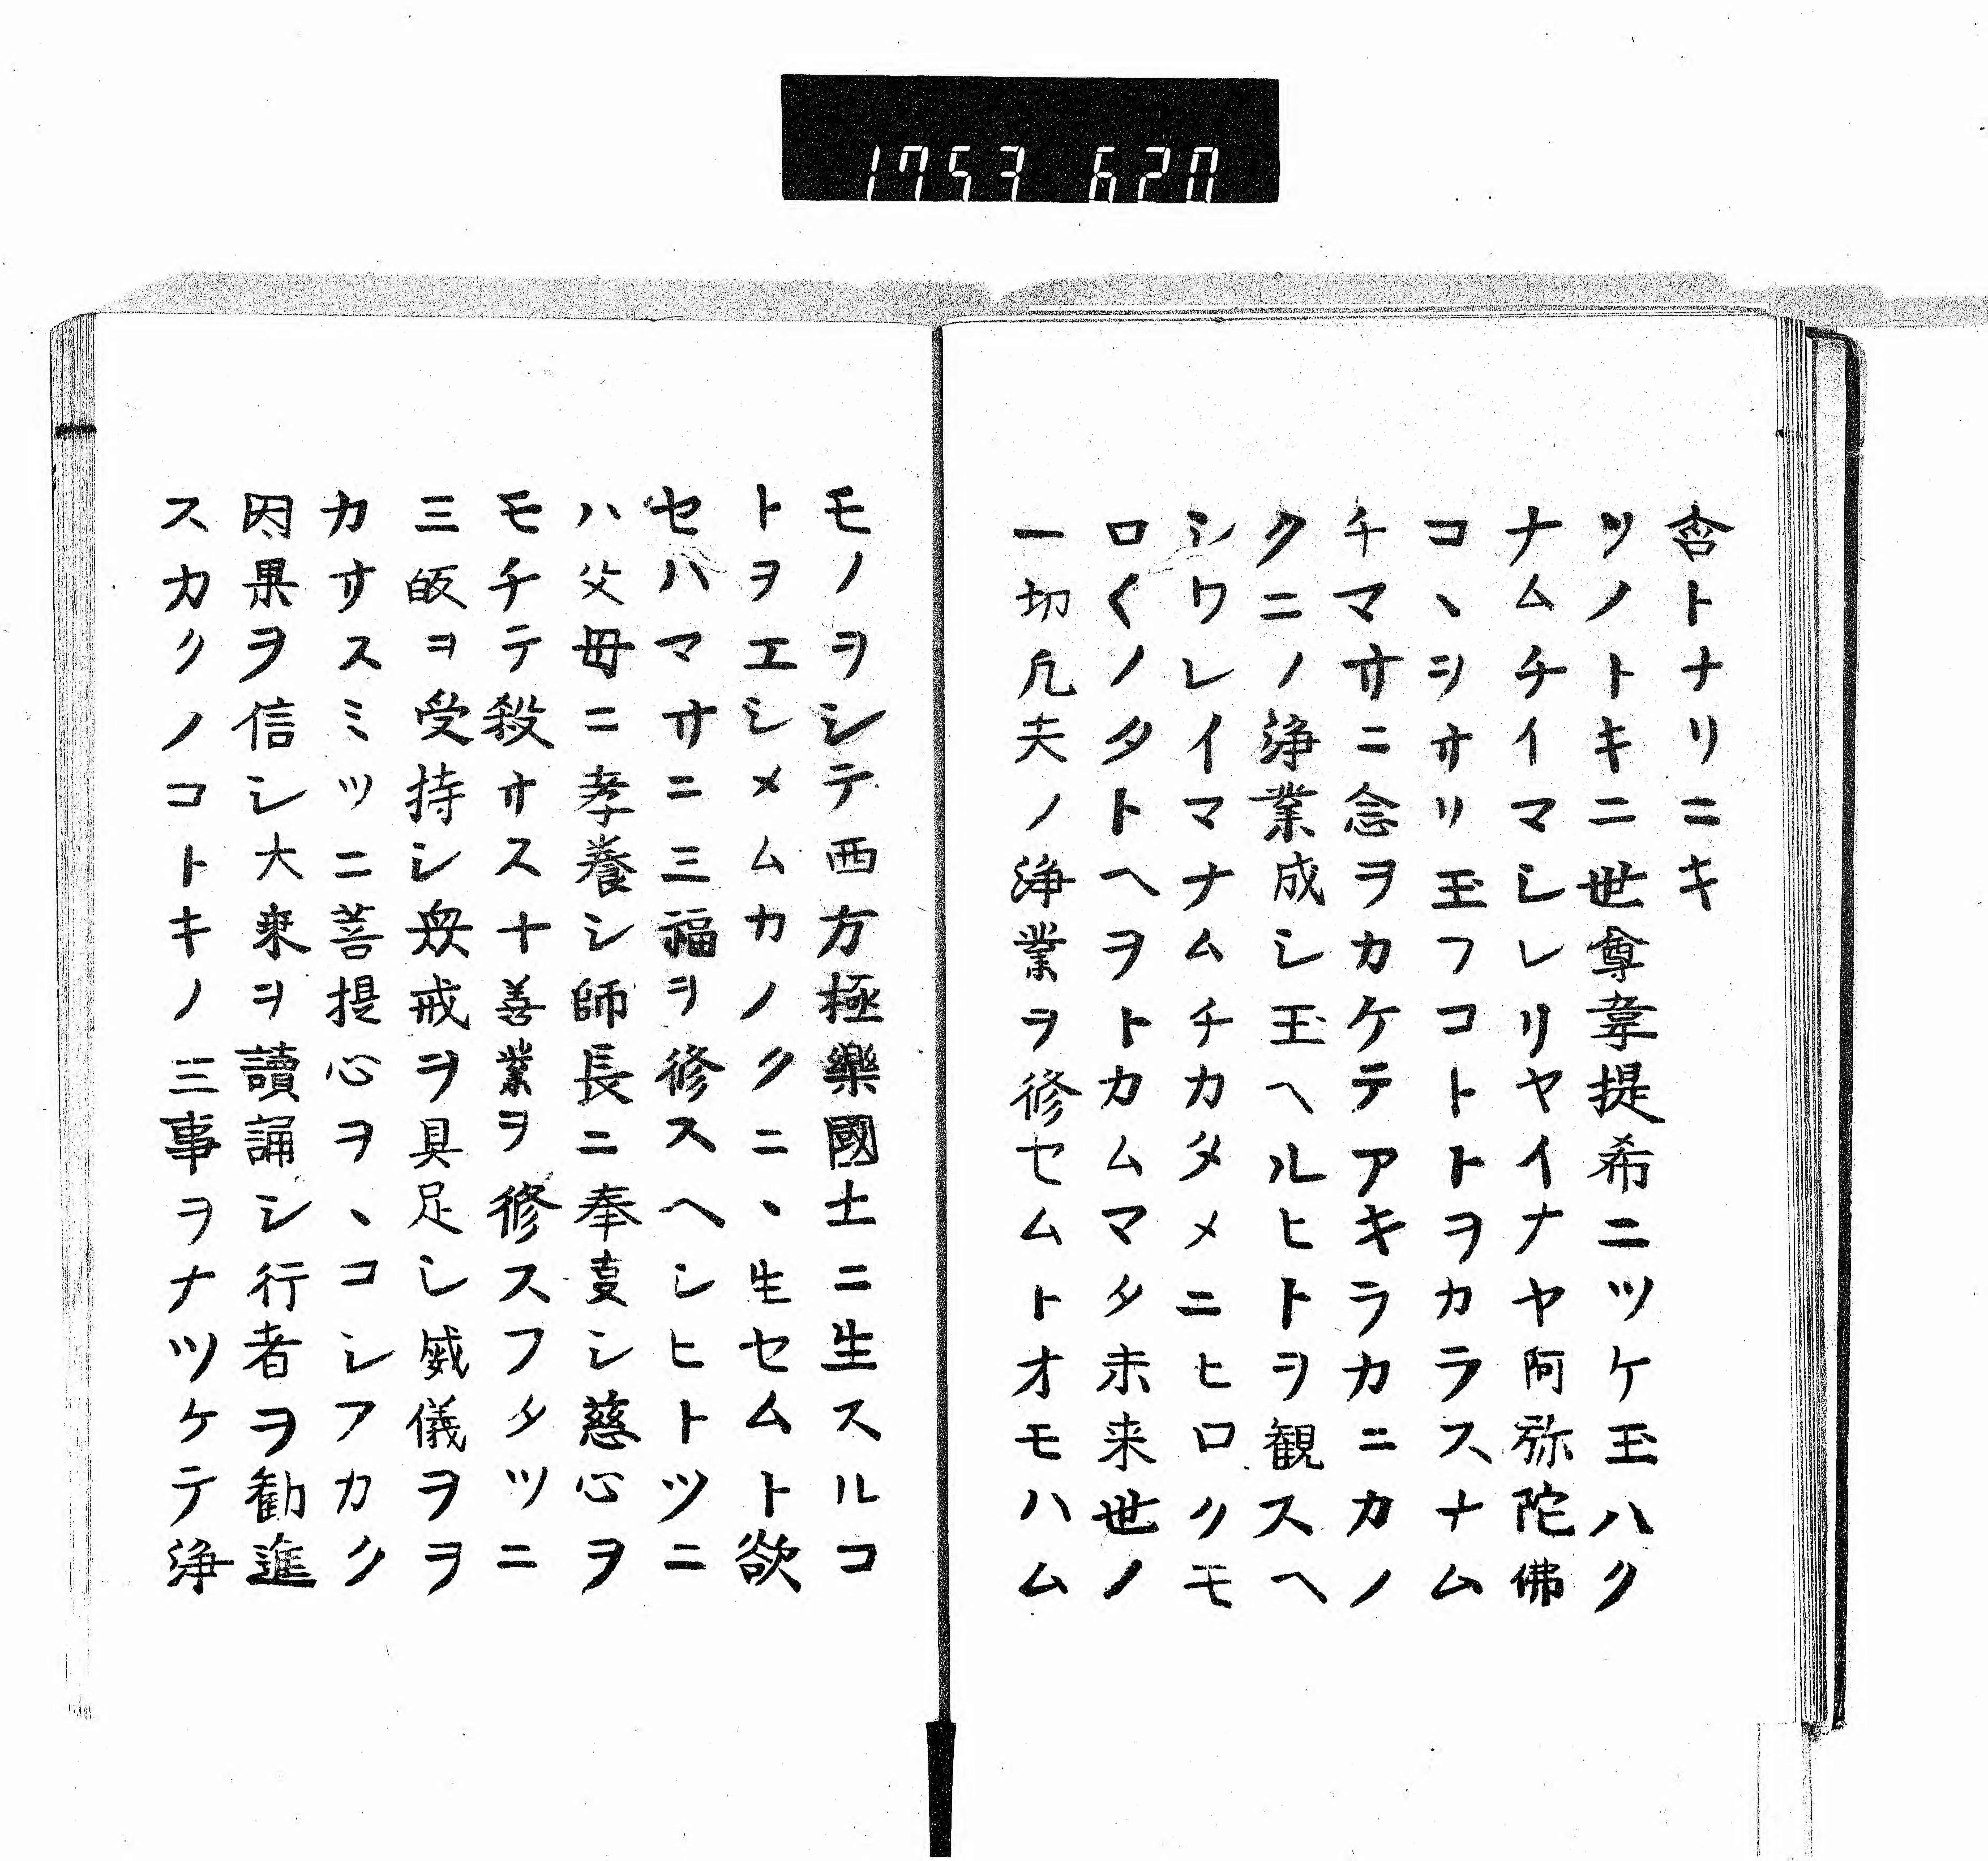 1753 620
含トナリニキ
ソノトキニ世尊韋提希ニツケ玉ハク
ナムチイマシレリヤイナヤ阿弥陀佛
コヽシサリ玉フコトトヲカラスナム
チマサニ念ヲカケテアキラカニカノ
クニノ浄業成シ玉ヘルヒトヲ観スヘ
シワレイマナムチカタメニヒロクモ
ロ〱ノタトヘヲトカムマタ未来世ノ
一切凡夫ノ浄業ヲ修セムトオモハム
モノヲシテ西方極樂國土ニ生スルコ
トヲエシメムカノクニヽ生セムト欲
セハマサニ三福ヲ修スヘシヒトツニ
ハ父母ニ孝養シ師長ニ奉事シ慈心ヲ
モチテ殺サス十善業ヲ修スフタツニ
三皈ヲ受持シ衆戒ヲ具足シ威儀ヲヲ
カサスミツニ菩提心ヲヽコシフカク
因果ヲ信シ大乗ヲ讀誦シ行者ヲ勧進
スカクノコトキノ三事ヲナツケテ浄